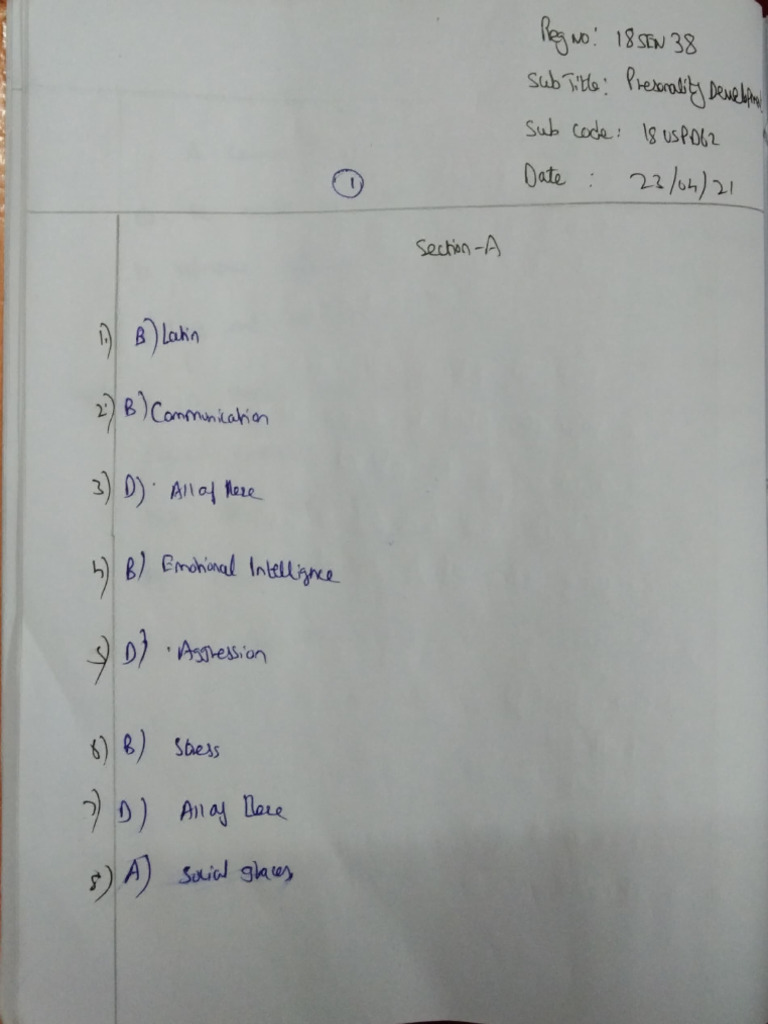 Reg no: 18SEN38
Sub Title: Presonality Development
Sub Code: 18USPD62
Date : 23/04/21
1
Section-A
1.) B) Latin
2.) B) Communication
3) D) All of these
4) B) Emotional Intelligence
5) D) Aggression
6) B) Stress
7) D) All of these
8) A) Social graces